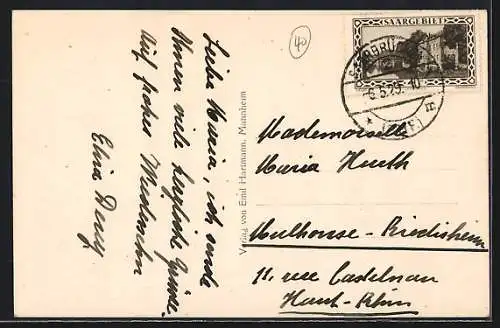 Liebe Maria, ich sende
Ihnen viele herzliche Grüsse.
Auf frohes Wiedersehn
Elvia
40
Verlag von Emil Hartmann, Mannheim
SAARGEBIET
SAARBRÜCKEN
-6.5.29. 10
Mademoiselle
Maria Hueth
Mulhouse-Riedisheim
11, rue Castelnau
Haut-Rhin